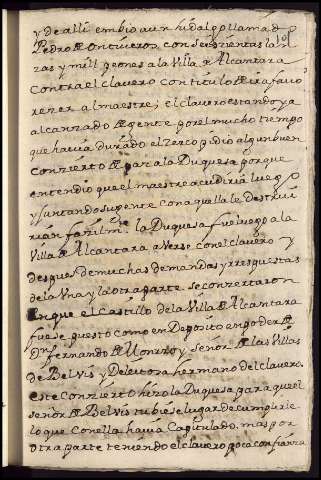 y de alli embio a un hidalgo llamado
Pedro de Ontiveros, con seiscientas lan
zas y mill peones a la Villa de Alcantara
Contra el clavero con titulo de ir a favo
recer al maestre; el clavero estando ya
alcanzado de gente por el mucho tiempo
que havia durado el zerco pidio algun buen
conzierto de paz a la Duquesa porque
entendio que el maestre acudiria luego
y juntando su gente con aquella le destrui
rian facilmte. la Duquesa fue luego a la
Villa de Alcantara a verse con el clavero y
despues de muchas demandas y respuestas
de la Una y la otra parte se conzertaron
en que el Castillo de la Villa de Alcantara
fuese puesto como en Deposito en poder de
Dn. fernando de Monroy, señor de las Villas
de Belvis y Deleitosa hermano del clavero,
este conzierto hizo la Duquesa para que el
señor de Belvis tubiese lugar de cumplirle
lo que con ella havia Capitulado, mas por
otra parte teniendo el clavero poca confianza